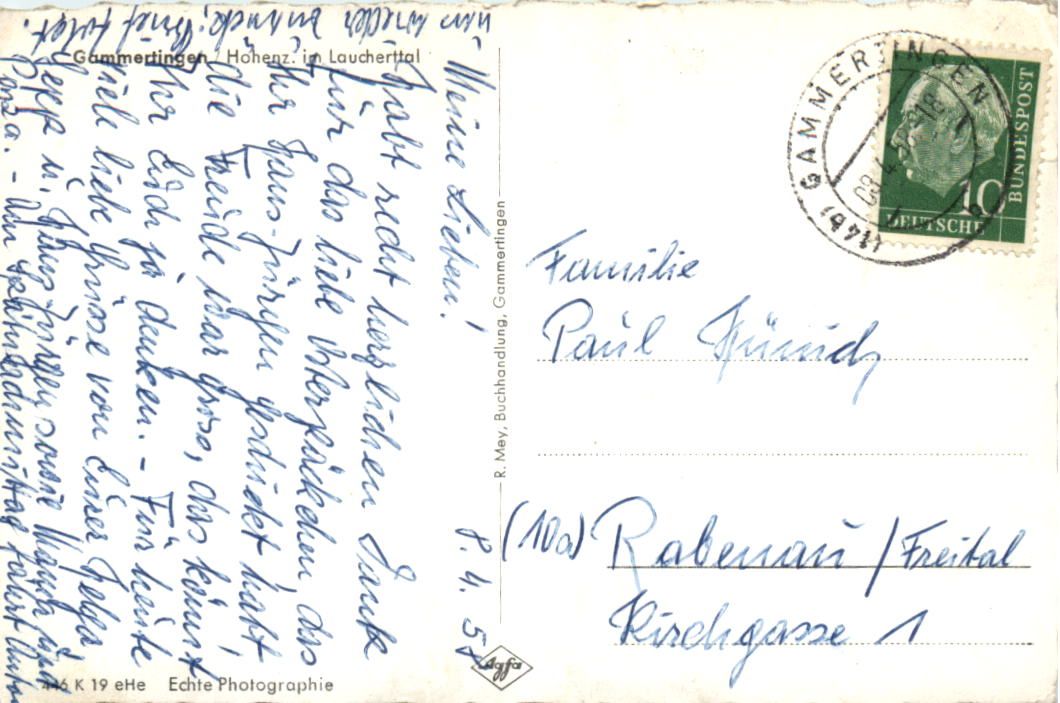 Gammertingen / Hohenz. im Laucherttal
8. 4. 58
Meine Lieben!
Habt recht herzlichen Dank
für das liebe Osterpäckchen, das
Ihr Hans-Jürgen geschickt habt,
die Freude war gross, das könnt
Ihr Euch ja denken. - Für heute
viele liebe Grüsse von Eurer Helga
Sepp u. Hans-Jürgen sowie Mama und
Papa. - Am
nun wieder zurück, Brief folgt.
R. Mey, Buchhandlung, Gammertingen
446 K 19 eHe Echte Photographie
Agfa
GAMMERTINGEN
(14b)
DEUTSCHE
BUNDESPOST
10
Familie
Paul Münch
(10a) Rabenau / Freital
Kirchgasse 1